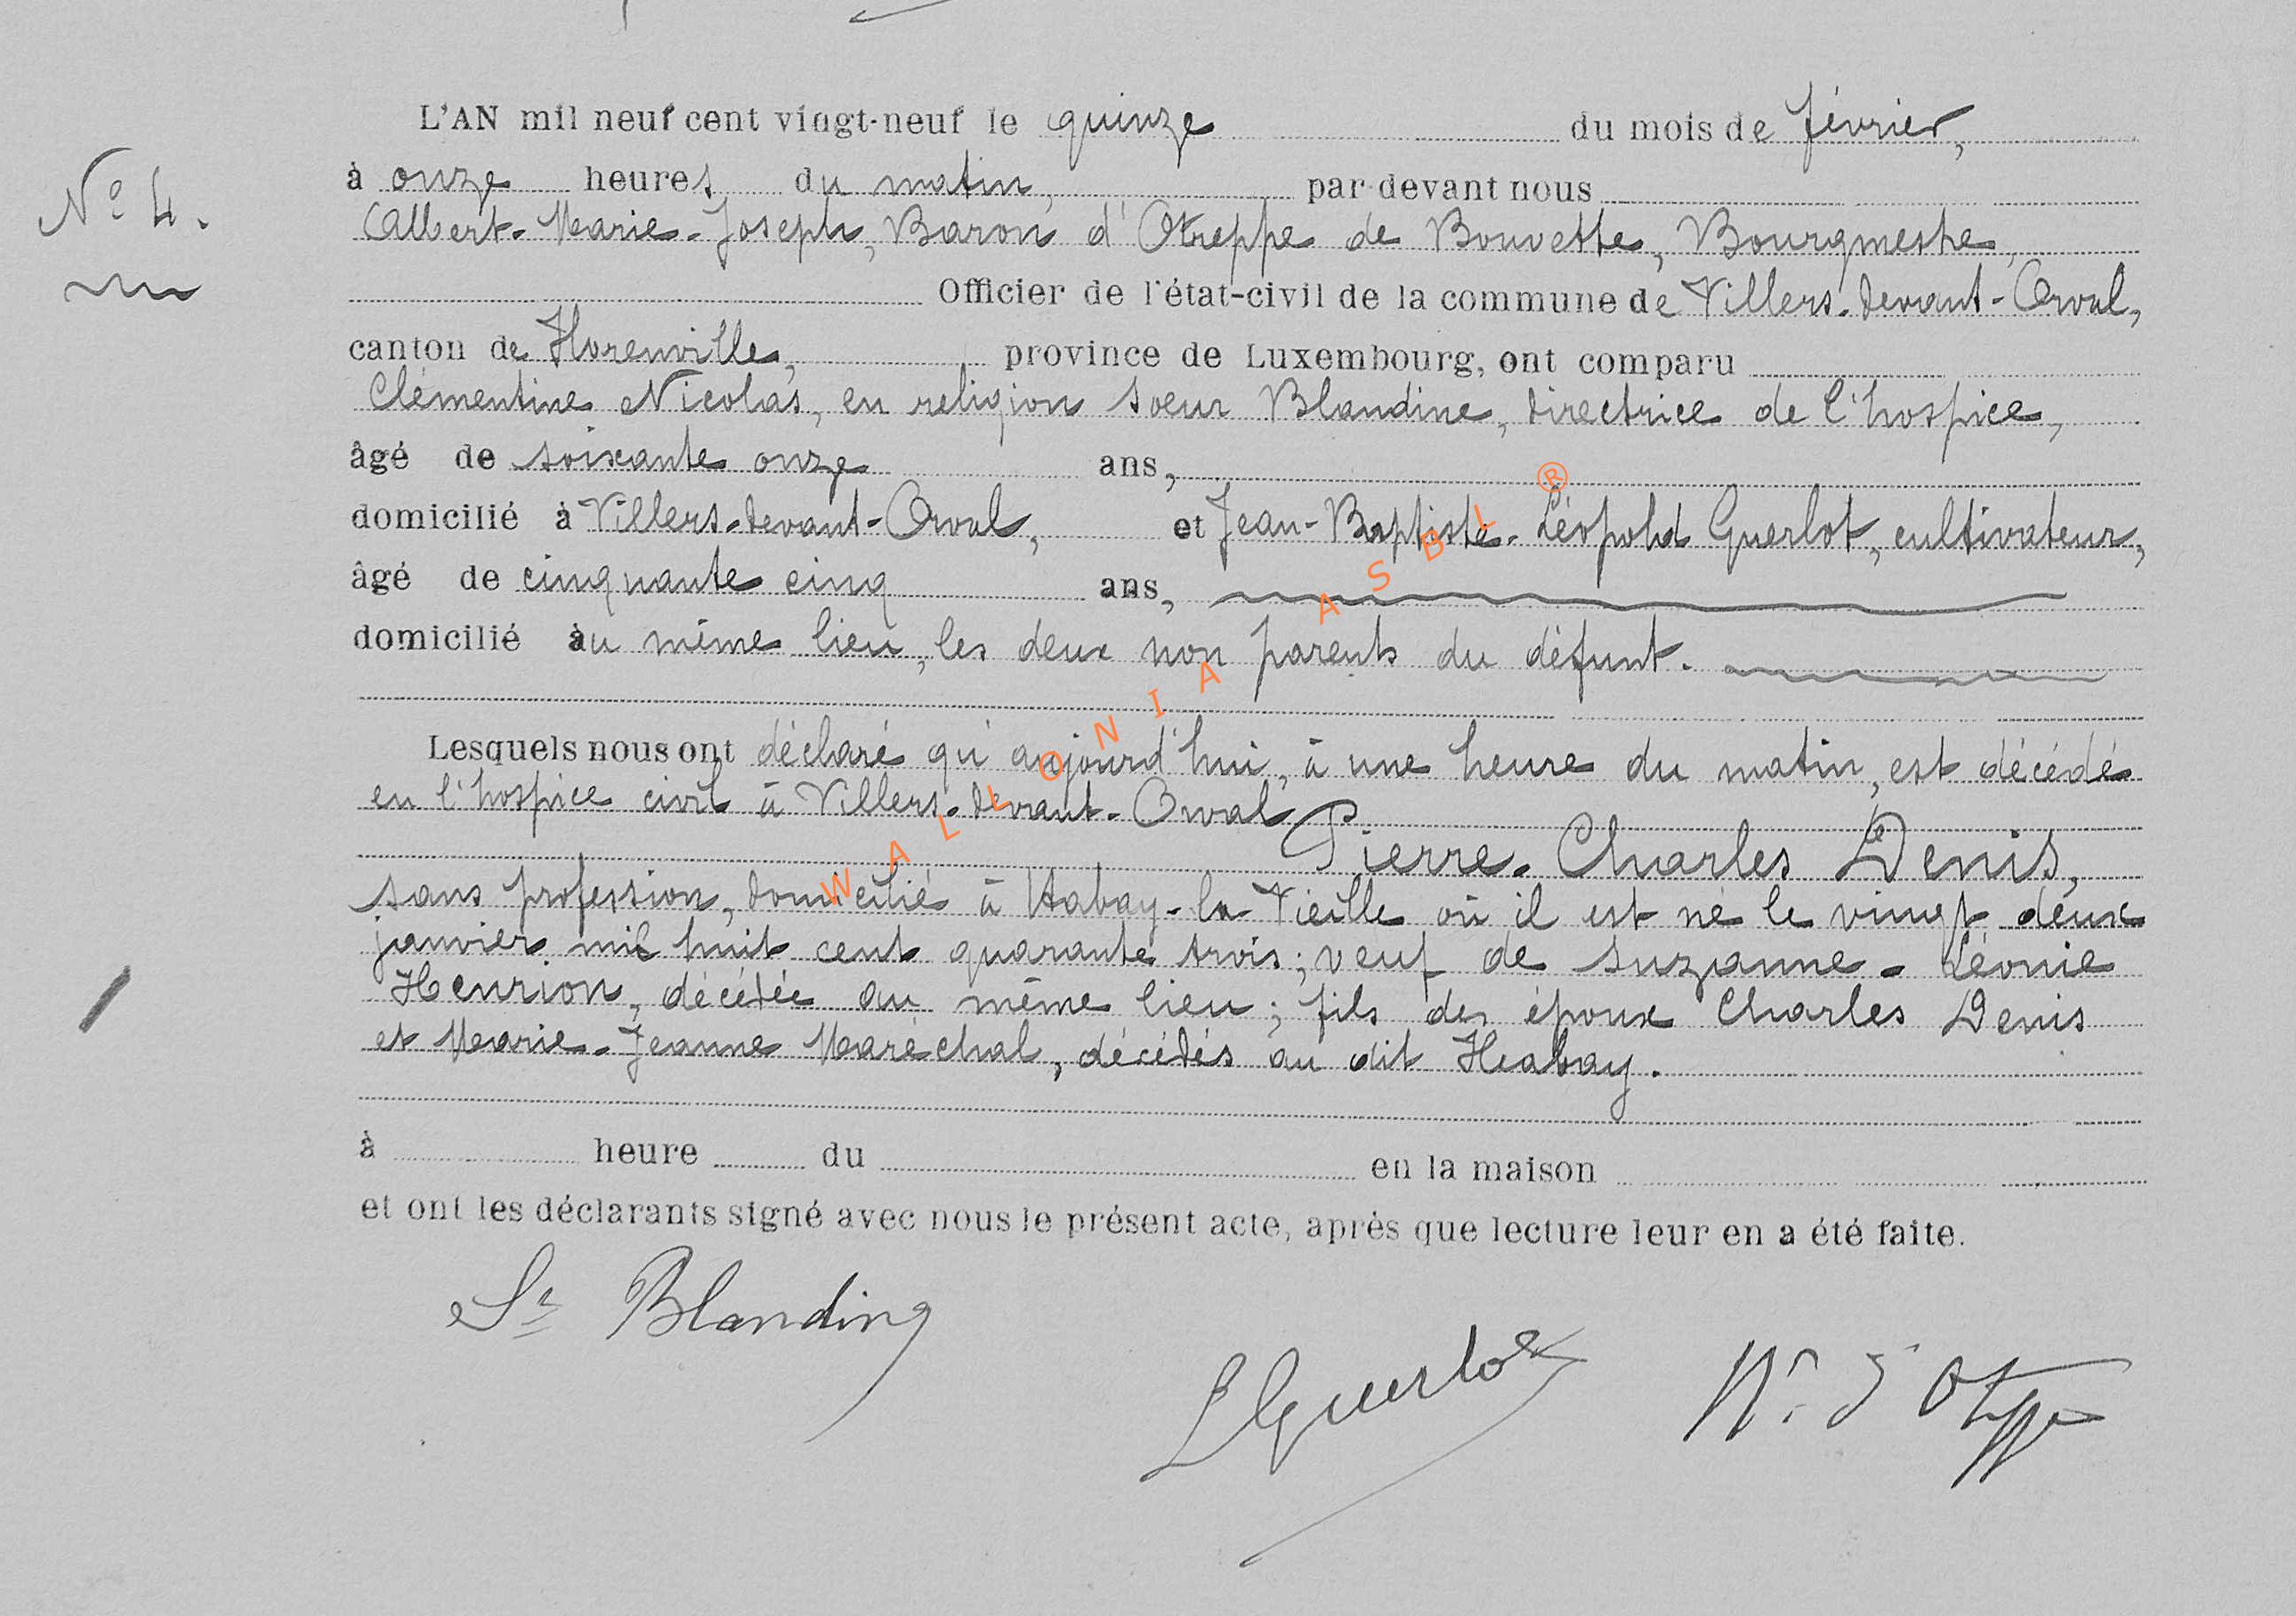 L'AN mil neuf cent vingt-neuf le quinze du mois de février,
N° 4.
à onze heures du matin, par devant nous
Albert-Marie-Joseph, Baron d'Otreppe de Bouvette, Bourgmestre,
Officier de l'état-civil de la commune de Villers-devant-Orval,
canton de Florenville, province de Luxembourg, ont comparu
Clémentine Nicolas, en religion soeur Blandine, directrice de l'hospice,
âgé de soixante onze ans,
domicilié à Villers-devant-Orval, et Jean-Baptiste-Léopold Guerlot, cultivateur,
âgé de cinquante cinq ans,
domicilié au même lieu, les deux non parents du défunt.
Lesquels nous ont déclaré qu'aujourd'hui, à une heure du matin, est décédé
en l'hospice civil à Villers-devant-Orval
Pierre-Charles Denis,
sans profession, domicilié à Habay-la-Vieille où il est né le vingt deux
janvier mil huit cent quarante trois; veuf de Suzanne-Léonie
Henrion, décédée au même lieu; fils des époux Charles Denis
et Marie-Jeanne Maréchal, décédés au dit Habay.
à heure du en la maison
et ont les déclarants signé avec nous le présent acte, après que lecture leur en a été faite.
Sr Blandine
L Guerlot
d'Otreppe
WALLONIA ASBL ®